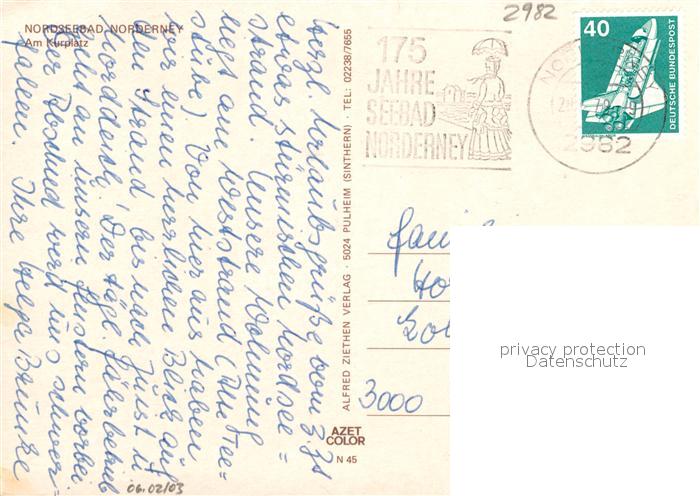 NORDSEEBAD NORDERNEY
Am Kurplatz
2982
175
JAHRE
SEEBAD
NORDERNEY
2982
40
DEUTSCHE BUNDESPOST
Herzl. Urlaubsgrüße vom z. Zt
etwas stürmischen Nordsee=
strand. Unsere Wohnung
liegt am Weststrand (Am Tee=
stübe). Von hier aus haben
wir einen herrlichen Blick auf
den Strand bis nach Juist u.
Norddeich. Der tägl. Fährbetrieb
geht an unsern Fenstern vorbei
Der Abschied wird uns schwer=
fallen. Ihre Helga
ALFRED ZIETHEN VERLAG · 5024 PULHEIM (SINTHERN) · TEL: 02238/7655
3000
AZET
COLOR
N 45
06.02/03
privacy protection
Datenschutz